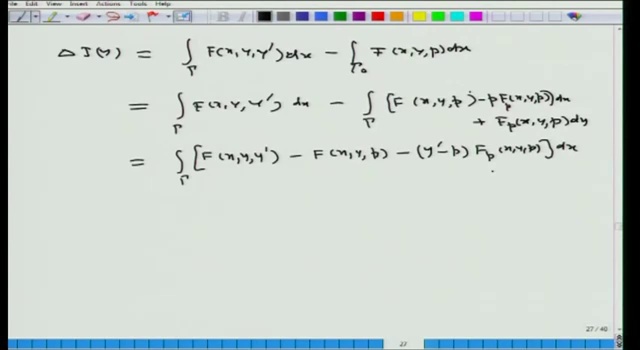 File View Insert Actions Tools Help
Δ J(y) = ∫_Γ F(x,y,y')dx − ∫_Γ₀ F(x,y,p)dx
= ∫_Γ F(x,y,y') dx − ∫_Γ [F(x,y,p) − p F_p(x,y,p)]dx
+ F_p(x,y,p)dy
= ∫_Γ [F(x,y,y') − F(x,y,p) − (y'−p) F_p(x,y,p)]dx
27 / 40
27